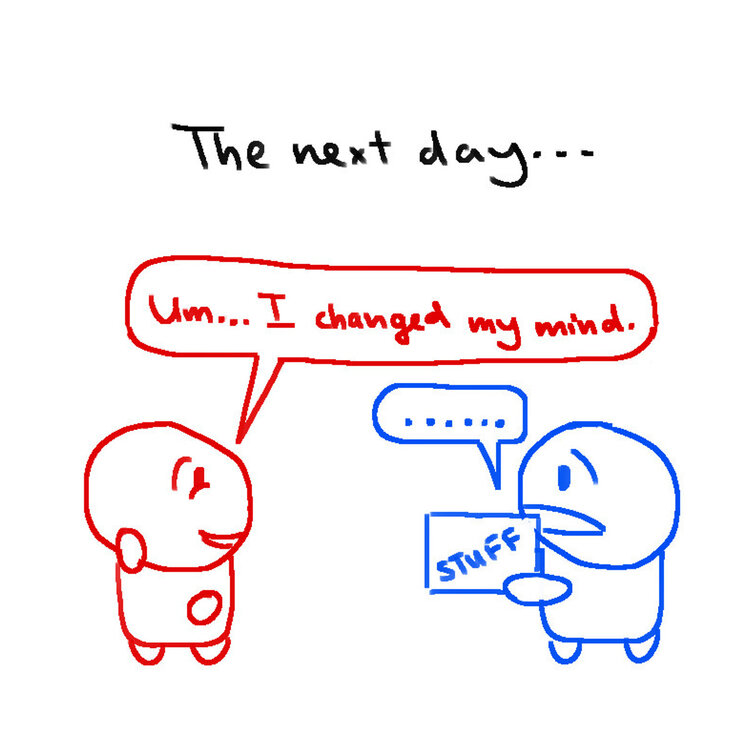 The next day...
Um... I changed my mind.
......
STUFF